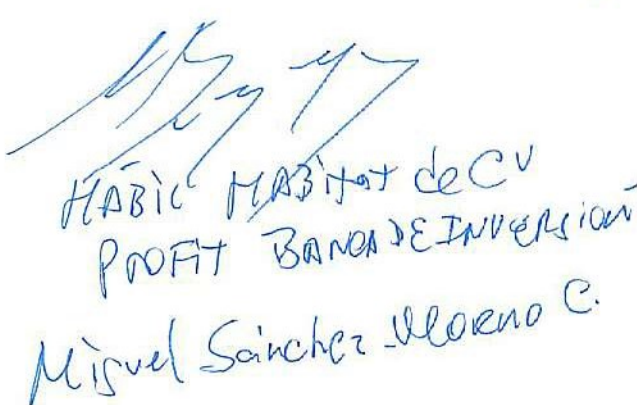 HÁBIL HABitat de CV
PROFIT BANCA DE INVERSION
Miguel Sánchez Moreno C.